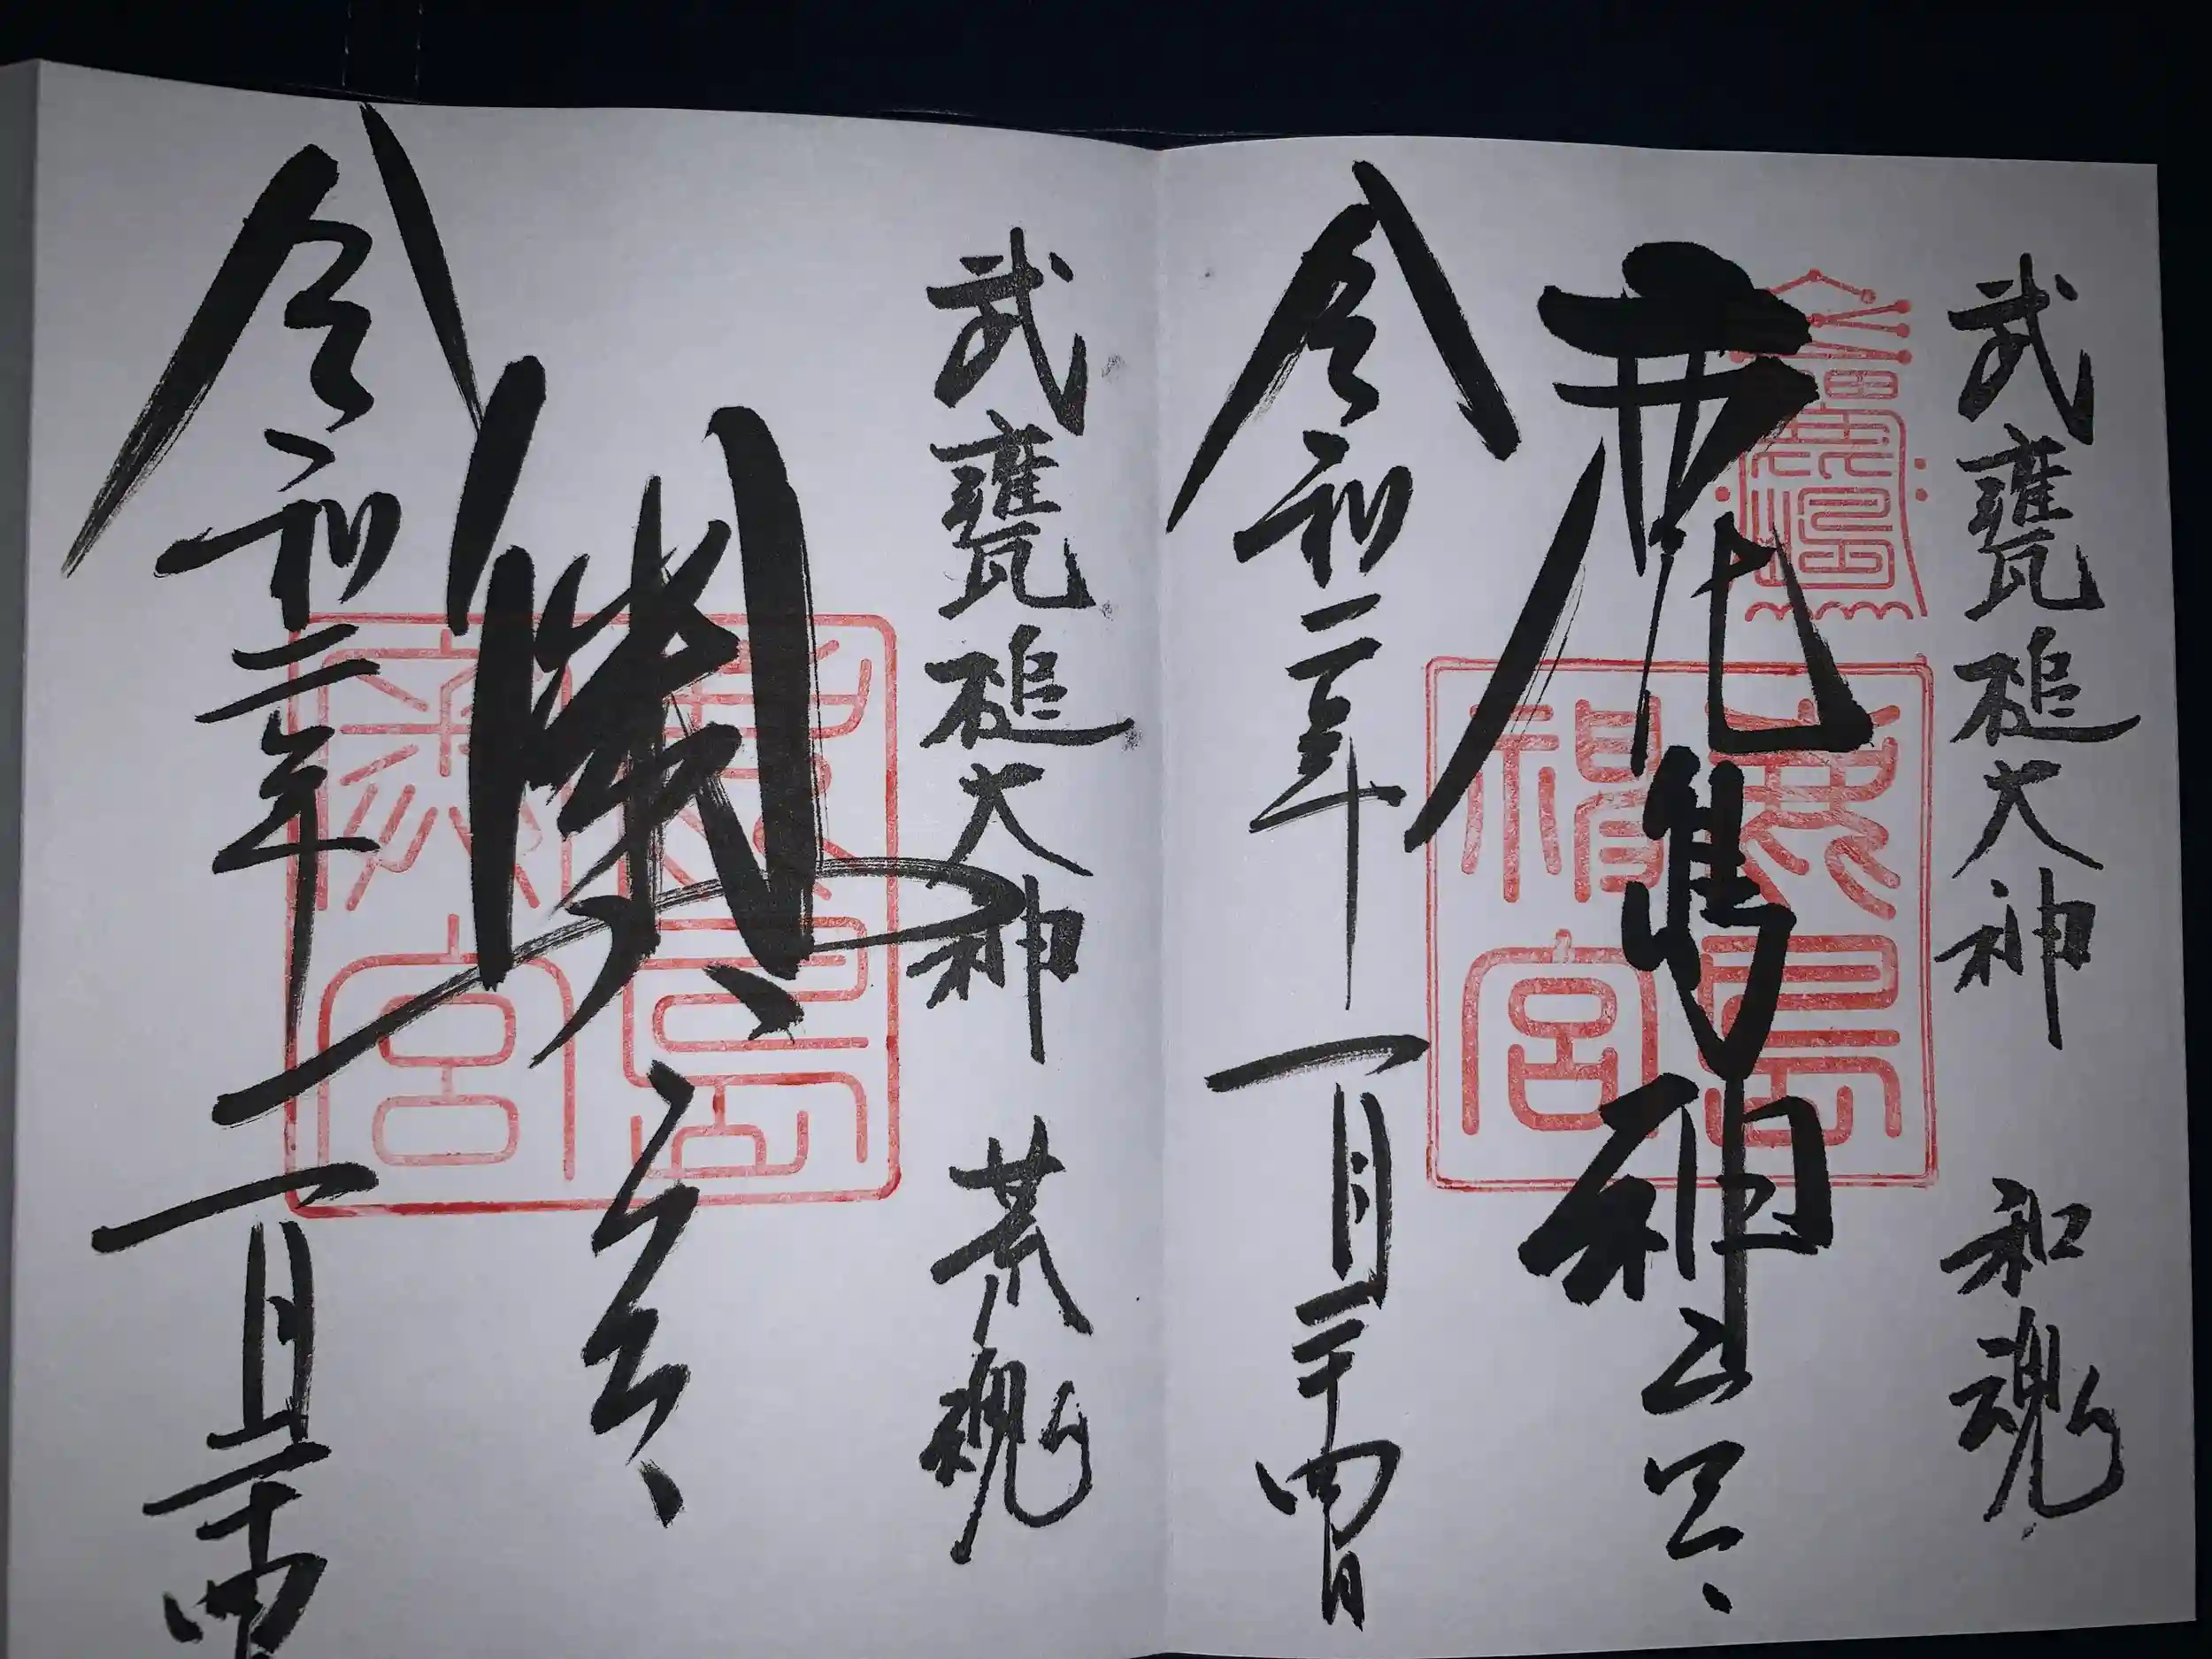 武甕槌大神 和魂
鹿島神宮
鹿島神宮
令和二年一月二十四日
武甕槌大神 荒魂
奥宮
鹿島奥宮
令和二年一月二十四日